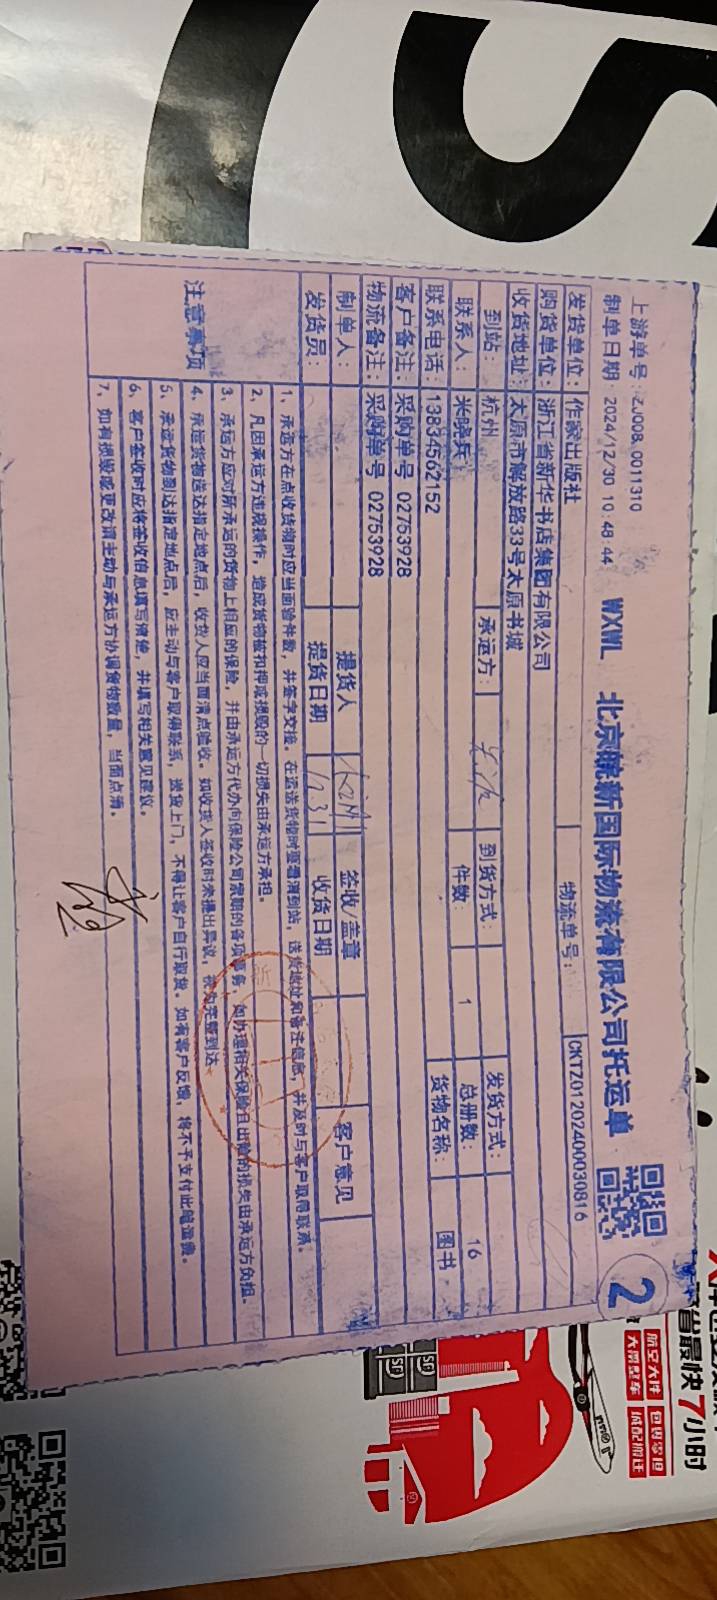 上游单号：ZJ00B_0011310
制单日期 2024/12/30 10:48:44
WXWL 北京皖新国际物流有限公司托运单
2
发货单位：作家出版社 物流单号： CKTZ0120240003081​6
购货单位：浙江省新华书店集团有限公司
收货地址：太原市解放路33号太原书城
到站： 杭州 承运方： 到货方式： 发货方式：
联系人： 米晓兵 件数： 1 总册数： 16
联系电话：13834562152 货物名称： 图书
客户备注：采购单号 02753928
物流备注：采购单号 02753928
制单人： 提货人 签收/盖章 客户意见
发货员： 提货日期 12.31 收货日期
注意事项
1、承运方在点收货物时应当面验件数，并签字交接。在运送货物时要看清到站，送货地址和备注信息，并及时与客户取得联系。
2、凡因承运方违规操作，造成货物被扣押或损毁的一切损失由承运方承担。
3、承运方应对所承运的货物上相应的保险，并由承运方代办向保险公司索赔的各项事务，如办理相关保险且出险的损失由承运方负担。
4、承运货物送达指定地点后，收货人应当面清点验收。如收货人签收时未提出异议，视为完整到达
5、承运货物到达指定地点后，应主动与客户取得联系，送货上门，不得让客户自行取货。如有客户反馈，将不予支付此笔运费。
6、客户签收时应将签收信息填写清楚，并填写相关意见建议。
7、如有损毁或更改请主动与承运方协调货物数量，当面点清。
省最快7小时
航空大件 包裹零担
大票整车 城配搬迁
SF